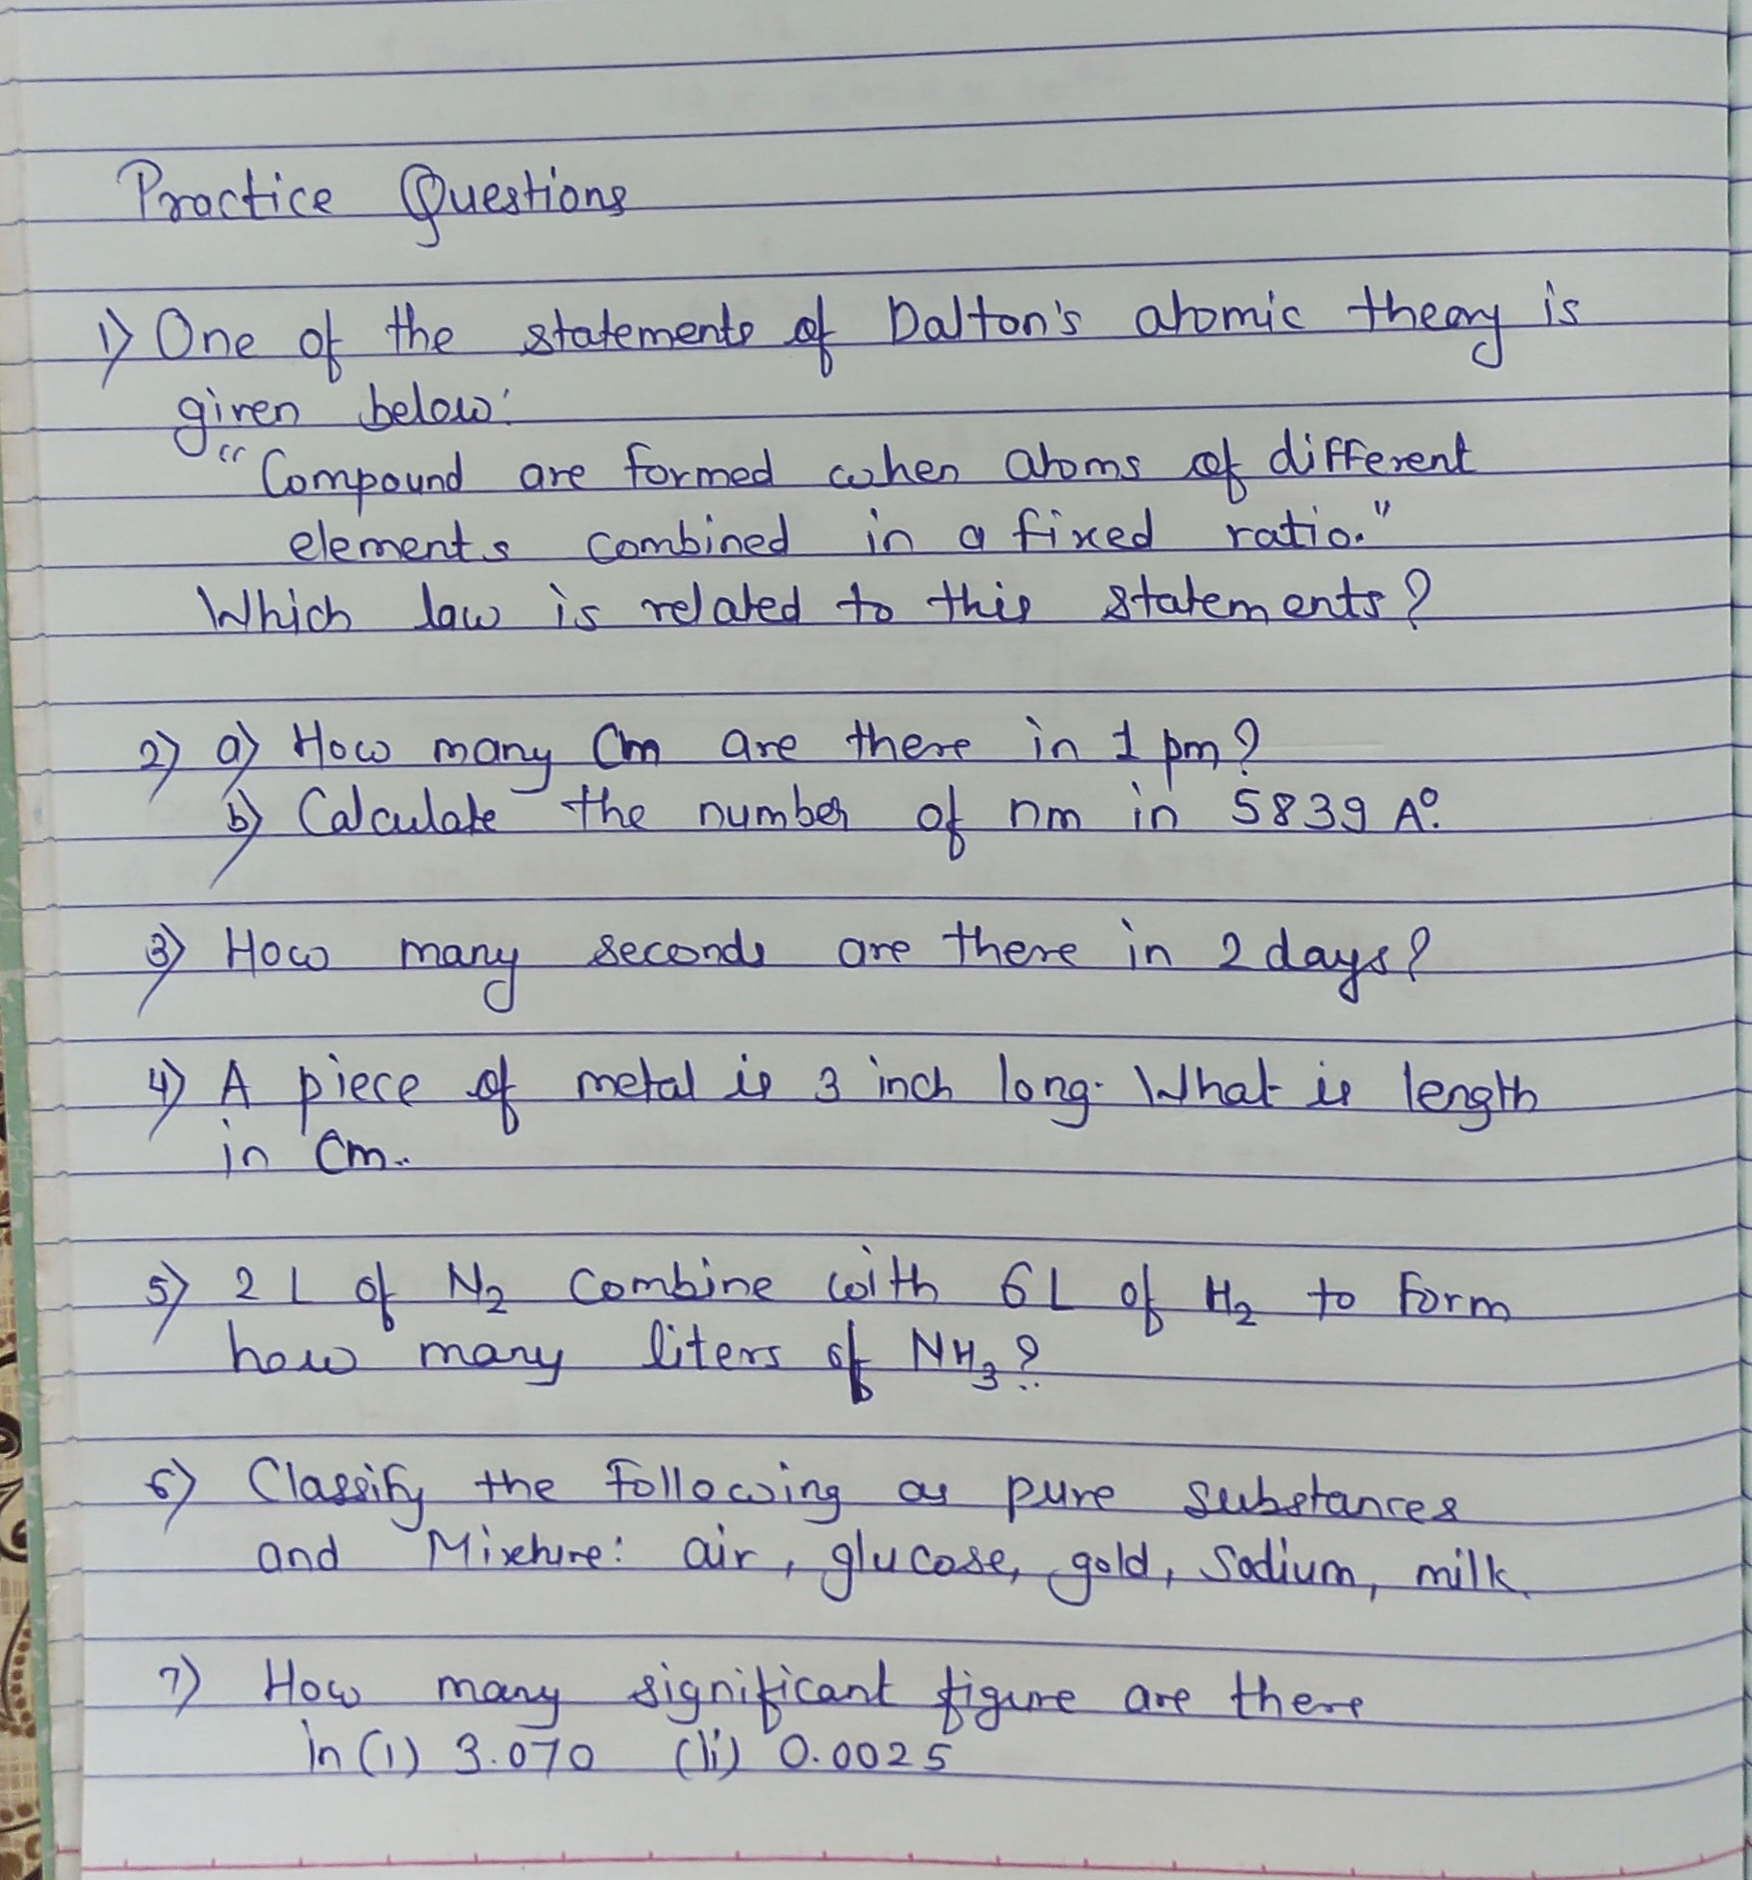 Practice Questions
1) One of the statements of Dalton's atomic theory is
given below:
"Compound are formed when atoms of different
elements combined in a fixed ratio."
Which law is related to this statements?
2) a) How many Cm are there in 1 pm?
b) Calculate the number of nm in 5839 A°.
3) How many seconds are there in 2 days?
4) A piece of metal is 3 inch long. What is length
in cm.
5) 2 L of N₂ combine with 6 L of H₂ to form
how many liters of NH₃?
6) Classify the following as pure substances
and Mixture: air, glucose, gold, Sodium, milk.
7) How many significant figure are there
in (i) 3.070 (ii) 0.0025